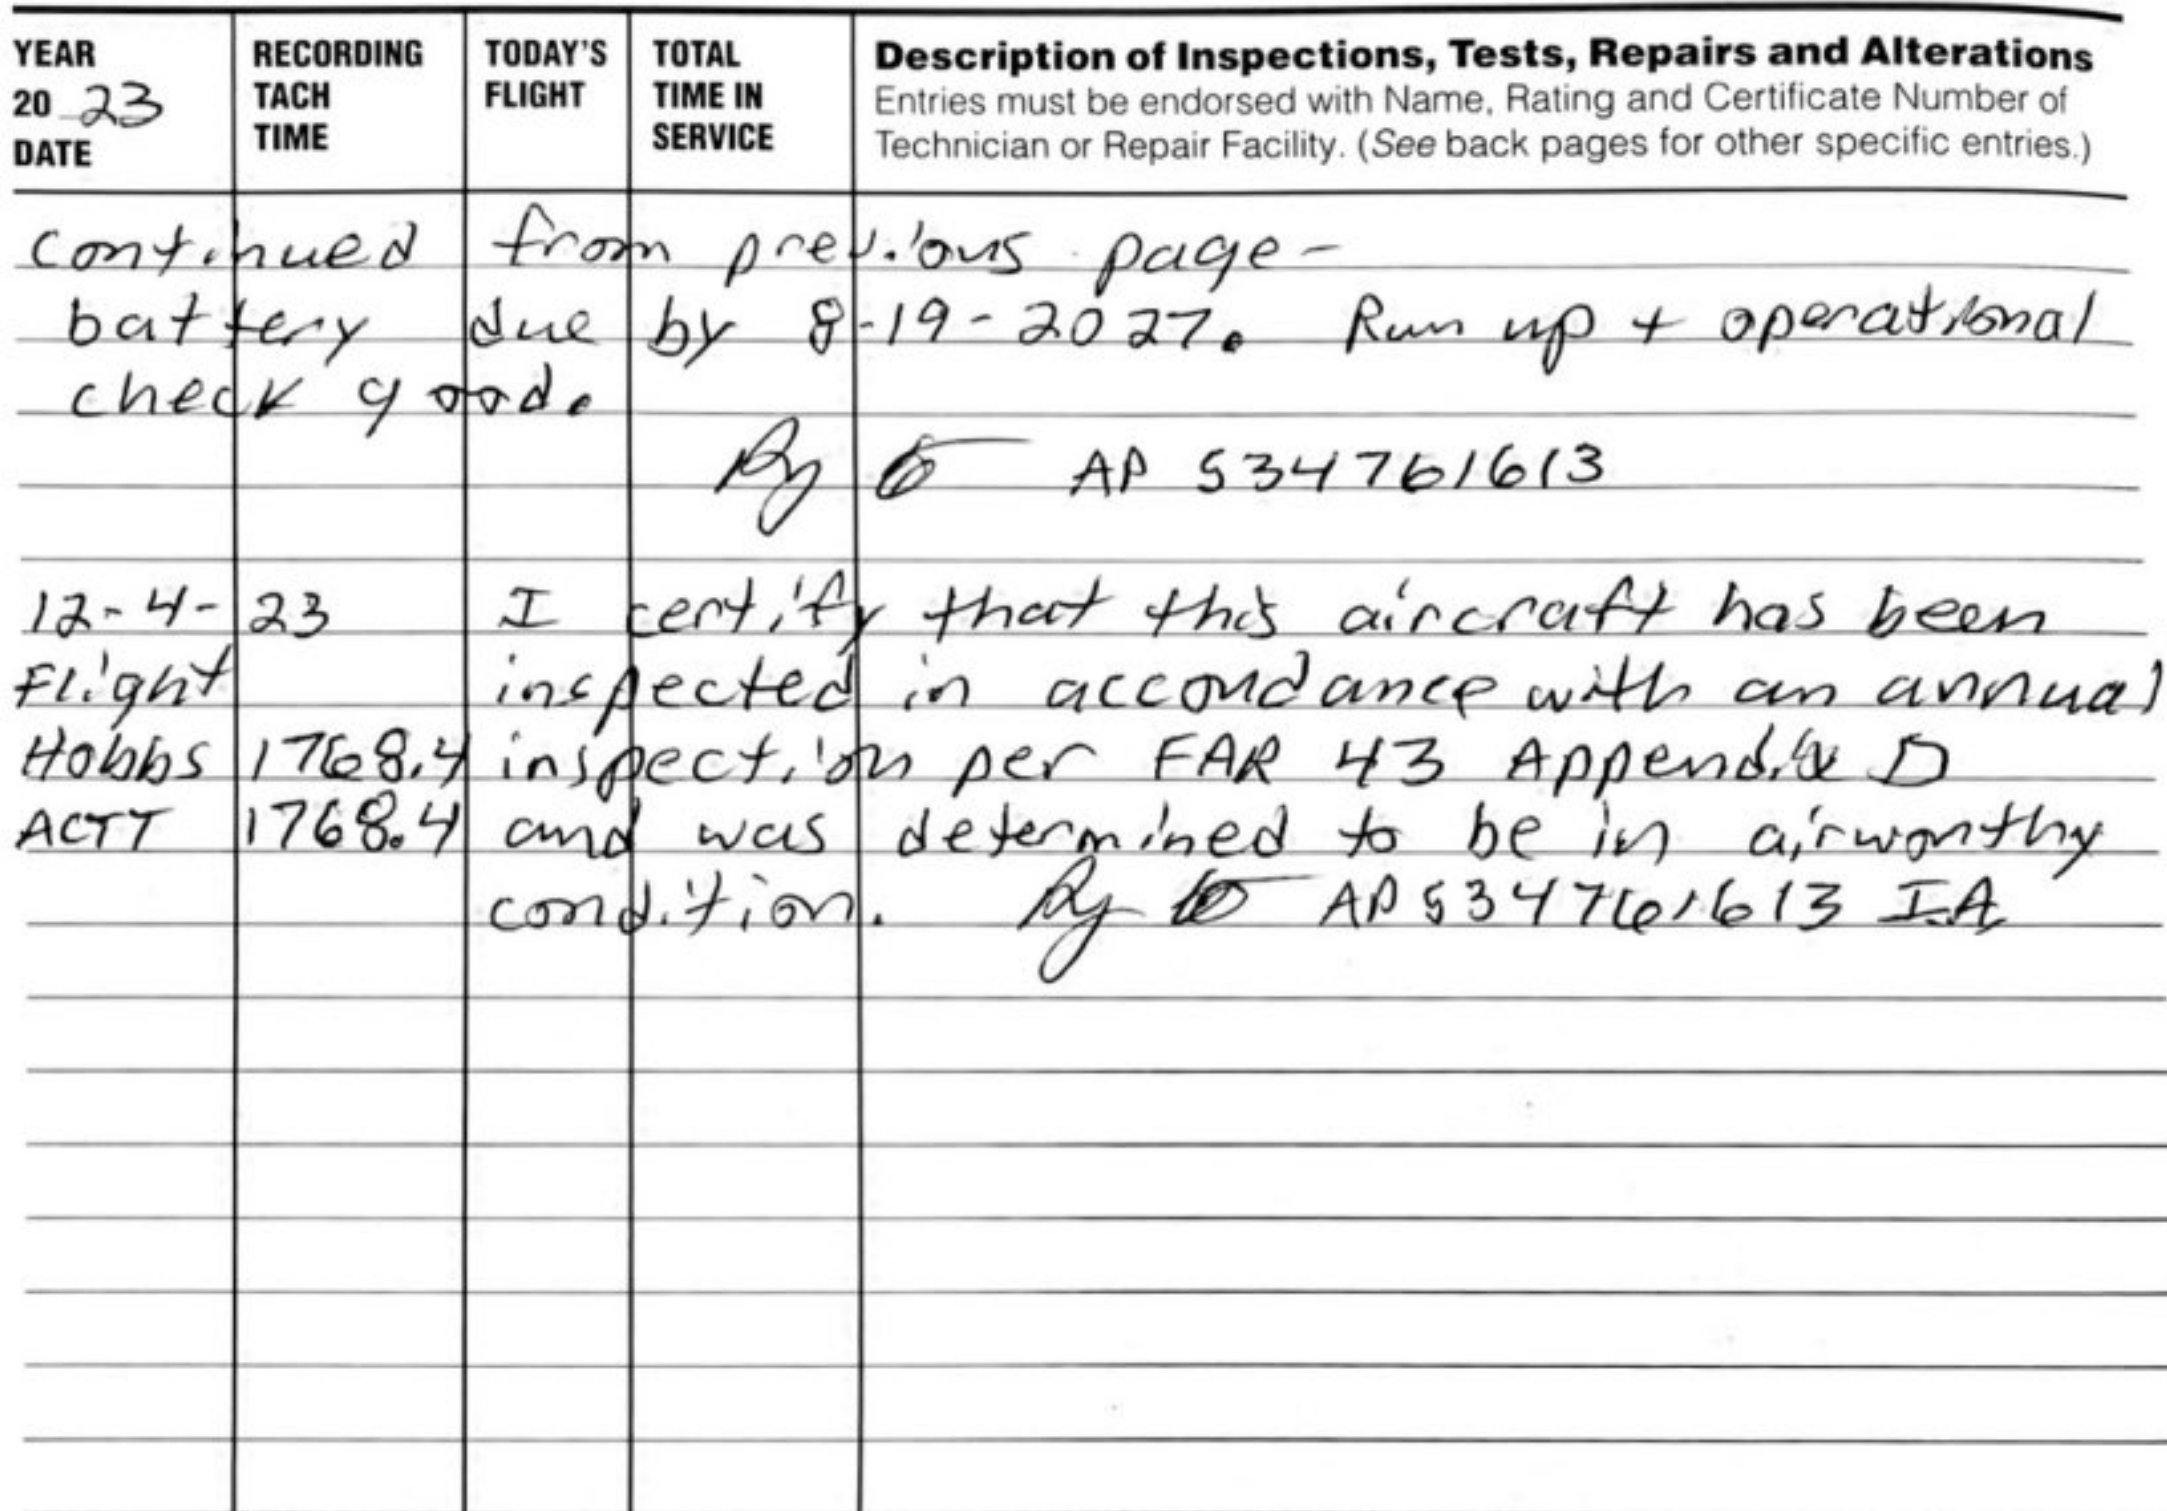 YEAR 20 23 DATE
RECORDING TACH TIME
TODAY'S FLIGHT
TOTAL TIME IN SERVICE
Description of Inspections, Tests, Repairs and Alterations
Entries must be endorsed with Name, Rating and Certificate Number of
Technician or Repair Facility. (See back pages for other specific entries.)
continued from previous page-
battery due by 8-19-2027. Run up + operational
check good.
AP 534761613
12-4-23 I certify that this aircraft has been
Flight inspected in accordance with an annual
Hobbs 1768.4 inspection per FAR 43 Appendix D
ACTT 1768.4 and was determined to be in airworthy
condition. AP 534761613 IA